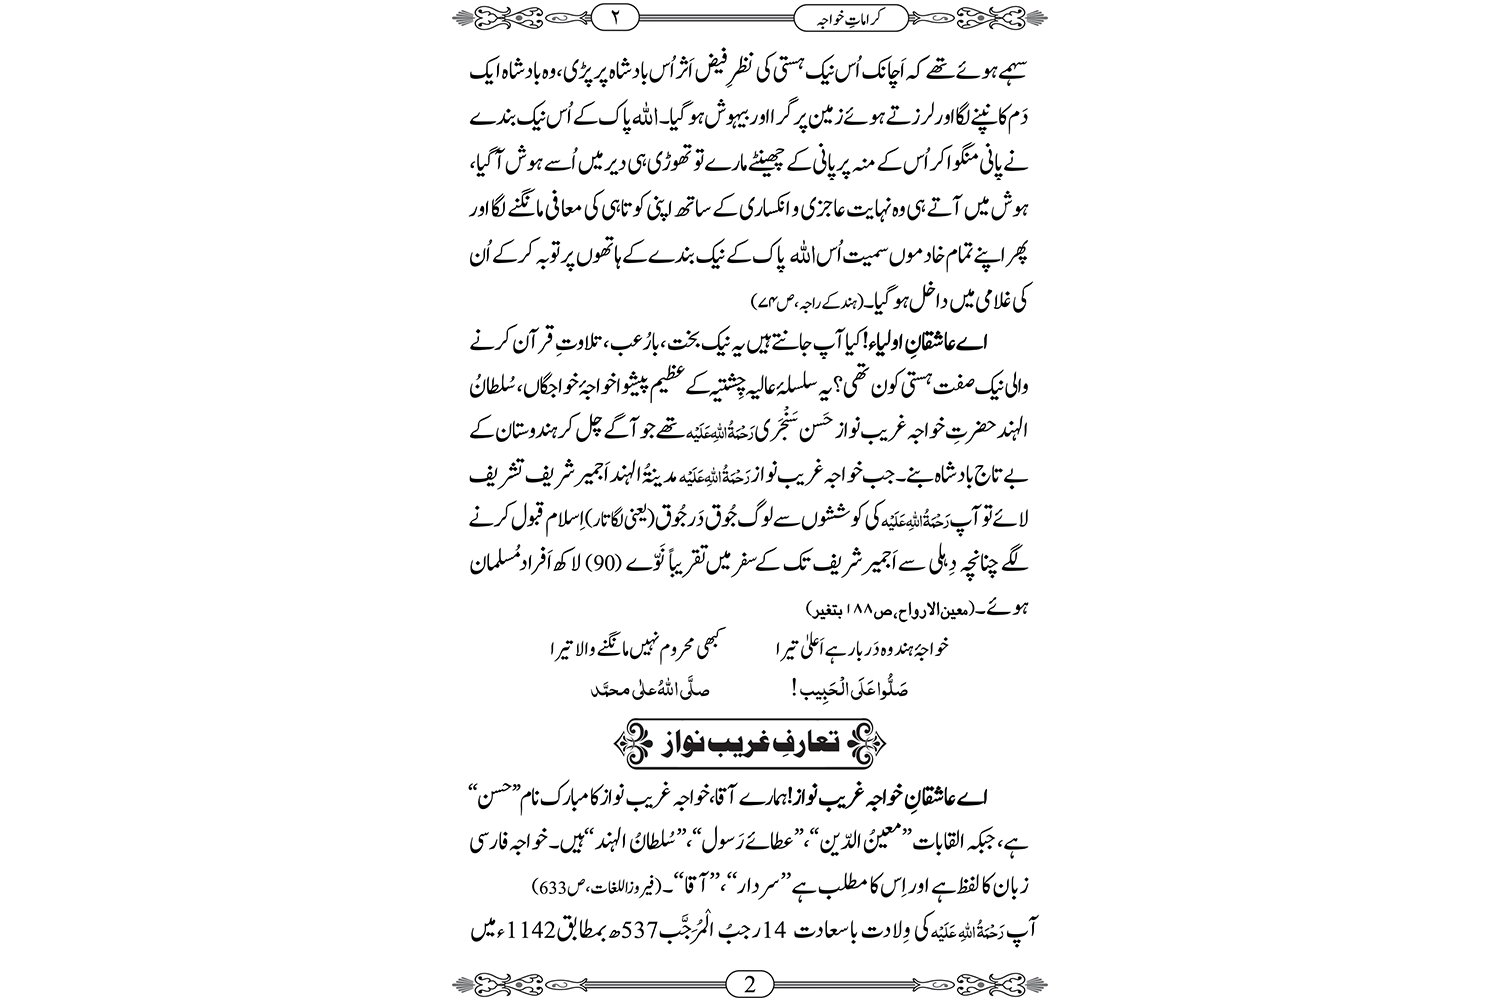 کراماتِ خواجہ
۲
سہمے ہوئے تھے کہ اَچانک اُس نیک ہستی کی نظرِ فیض اَثر اُس بادشاہ پر پڑی، وہ بادشاہ ایک
دَم کانپنے لگا اور لرزتے ہوئے زمین پر گرا اور بیہوش ہوگیا۔ اللہ پاک کے اُس نیک بندے
نے پانی منگوا کر اُس کے منہ پر پانی کے چھینٹے مارے تو تھوڑی ہی دیر میں اُسے ہوش آگیا،
ہوش میں آتے ہی وہ نہایت عاجزی و انکساری کے ساتھ اپنی کوتاہی کی معافی مانگنے لگا اور
پھر اپنے تمام خادموں سمیت اُس اللہ پاک کے نیک بندے کے ہاتھوں پر توبہ کرکے اُن
کی غلامی میں داخل ہوگیا۔ (ہند کے راجہ، ص۷۴)
اے عاشقانِ اولیاء! کیا آپ جانتے ہیں یہ نیک بخت، بارُعب، تلاوتِ قرآن کرنے
والی نیک صفت ہستی کون تھی؟ یہ سلسلۂ عالیہ چِشتیہ کے عظیم پیشوا خواجۂ خواجگاں، سُلطانُ
الہند حضرتِ خواجہ غریب نواز حَسن سَنْجَری رَحْمَۃُ اللہِ عَلَیْہ تھے جو آگے چل کر ہندوستان کے
بے تاج بادشاہ بنے۔ جب خواجہ غریب نواز رَحْمَۃُ اللہِ عَلَیْہ مدینۃُ الہند اَجمیر شریف تشریف
لائے تو آپ رَحْمَۃُ اللہِ عَلَیْہ کی کوششوں سے لوگ جُوق دَر جُوق (یعنی لگاتار) اِسلام قبول کرنے
لگے چنانچہ دِہلی سے اَجمیر شریف تک کے سفر میں تقریباً نَوّے (90) لاکھ اَفراد مُسلمان
ہوئے۔ (معین الارواح، ص۱۸۸ بتغیر)
خواجۂ ہند وہ دَربار ہے اَعلیٰ تیرا کبھی محروم نہیں مانگنے والا تیرا
صَلُّوا عَلَی الْحَبِیب! صلَّی اللّٰہُ علٰی محمَّد
تعارفِ غریب نواز
اے عاشقانِ خواجہ غریب نواز! ہمارے آقا، خواجہ غریب نواز کا مبارک نام ”حسن“
ہے، جبکہ القابات ”معینُ الدّین“، ”عطائے رَسول“، ”سُلطانُ الہند“ ہیں۔ خواجہ فارسی
زبان کا لفظ ہے اور اِس کا مطلب ہے ”سردار“، ”آقا“۔ (فیروز اللغات، ص633)
آپ رَحْمَۃُ اللہِ عَلَیْہ کی وِلادت باسعادت 14 رجبُ الْمُرَجَّب 537ھ بمطابق 1142ء میں
2